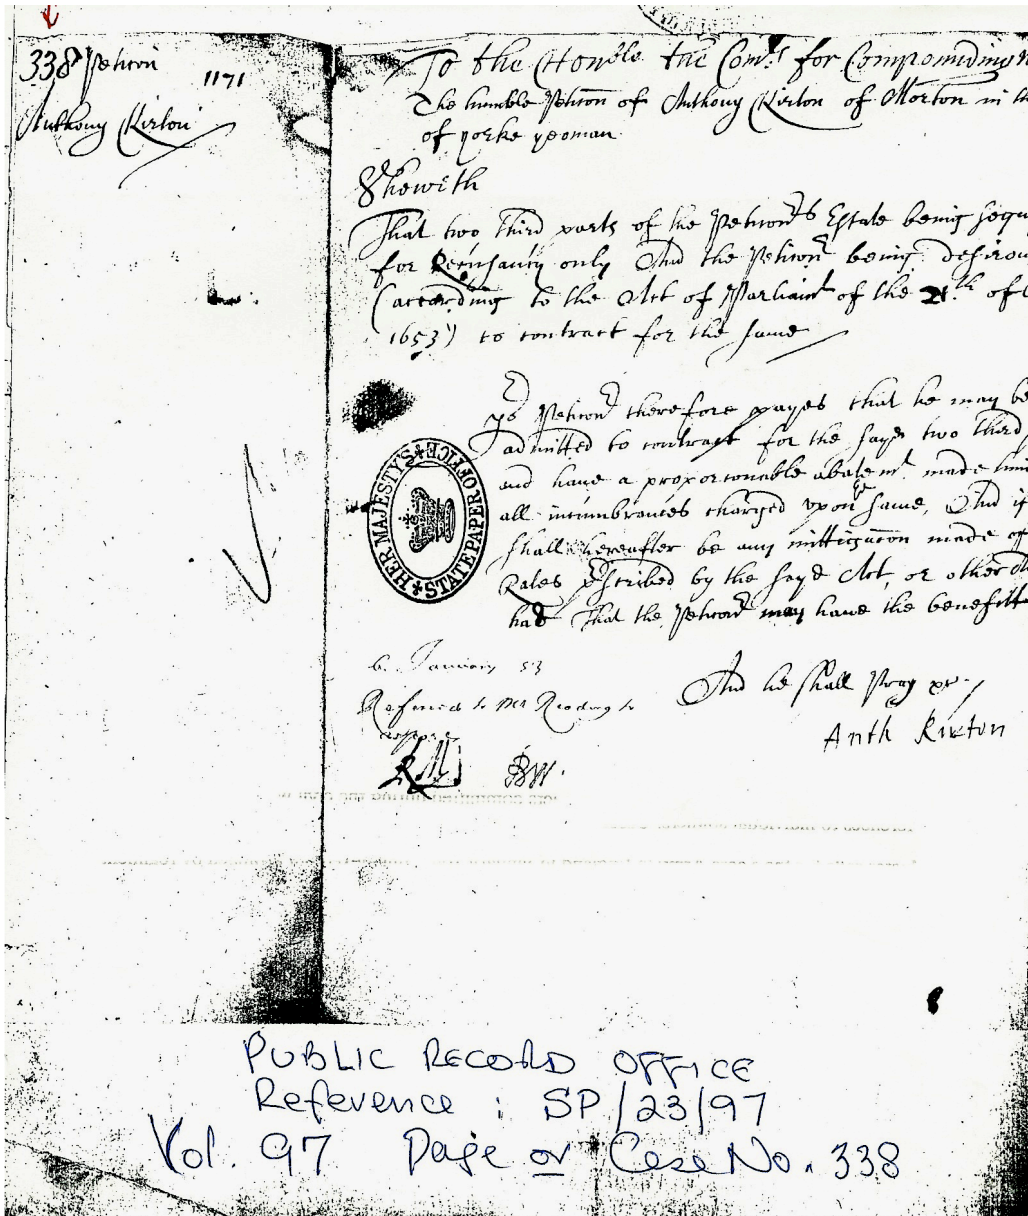 338 Peticon
1171
Anthony Kirton
To the Honble the Comrs for Compounding
The humble Peticon of Anthony Kirton of Morton in th
of yorke yeoman
Sheweth
That two third parts of the Peticonrs Estate being sequ
for Recusancy only And the Peticonr being desirou
(according to the Act of Parliamt of the 21th of
1653) to contract for the same
yor Peticonr therefore prayes that he may be
admitted to contract for the sayd two third
and have a proporconable abatemt made him
all incumbrances charged upon ye same, And if
shall hereafter be any mittigacon made of
Rates prscribed by the sayd Act, or other
had That the Peticonr may have the benefitt
And he shall Pray &c.
Anth Kirton
6. January 53
Referred to Mr Reading to
RM BW.
HER MAJESTY'S STATE PAPER OFFICE
PUBLIC RECORD OFFICE
Reference : SP/23/97
Vol. 97 Page or Case No. 338